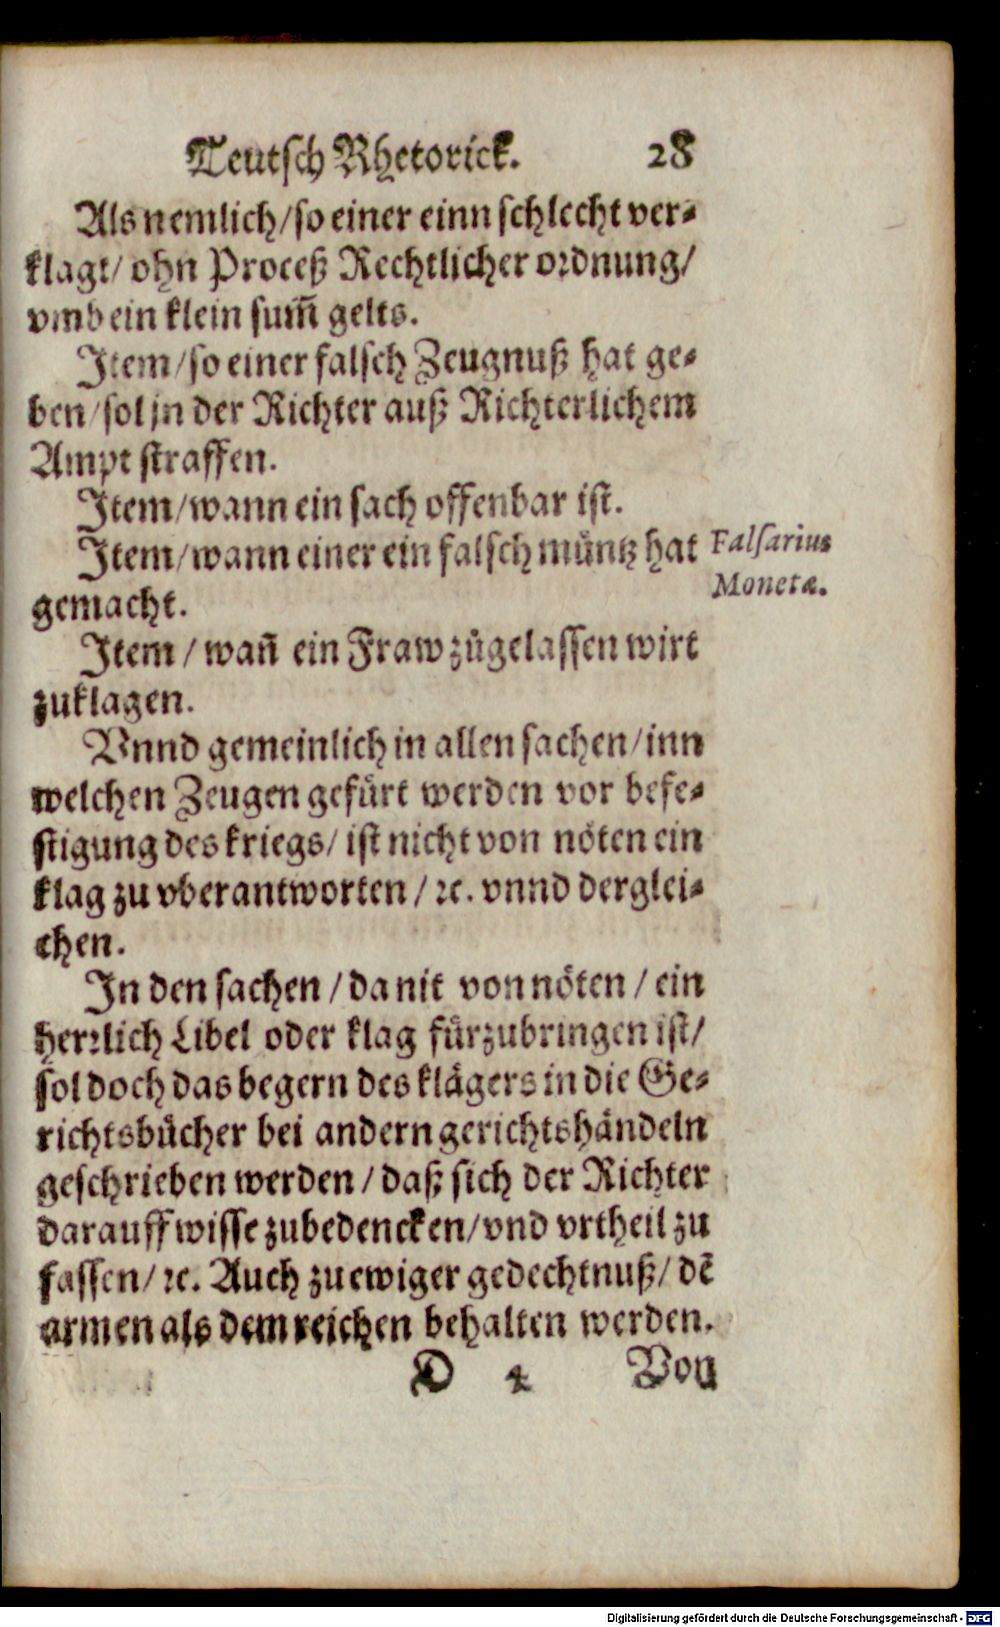 Teutsch Rhetorick. 28
Als nemlich/so einer einn schlecht ver-
klagt/ ohn Proceß Rechtlicher ordnung/
vmb ein klein sum̃ gelts.
Item/so einer falsch Zeugnuß hat ge-
ben/sol jn der Richter auß Richterlichem
Ampt straffen.
Item/wann ein sach offenbar ist.
Item/wann einer ein falsch müntz hat
gemacht.
Falsarius
Monetæ.
Item / wañ ein Fraw zůgelassen wirt
zuklagen.
Vnnd gemeinlich in allen sachen/inn
welchen Zeugen gefürt werden vor befe-
stigung des kriegs/ ist nicht von nöten ein
klag zu vberantworten / ꝛc. vnnd derglei-
chen.
In den sachen / da nit von nöten / ein
herꝛlich Libel oder klag fürzubringen ist/
sol doch das begern des klägers in die Ge-
richtsbücher bei andern gerichtshändeln
geschrieben werden / daß sich der Richter
darauff wisse zubedencken/vnd vrtheil zu
fassen/ ꝛc. Auch zu ewiger gedechtnuß/ dẽ
armen als dem reichen behalten werden.
D 4 Von
Digitalisierung gefördert durch die Deutsche Forschungsgemeinschaft - DFG